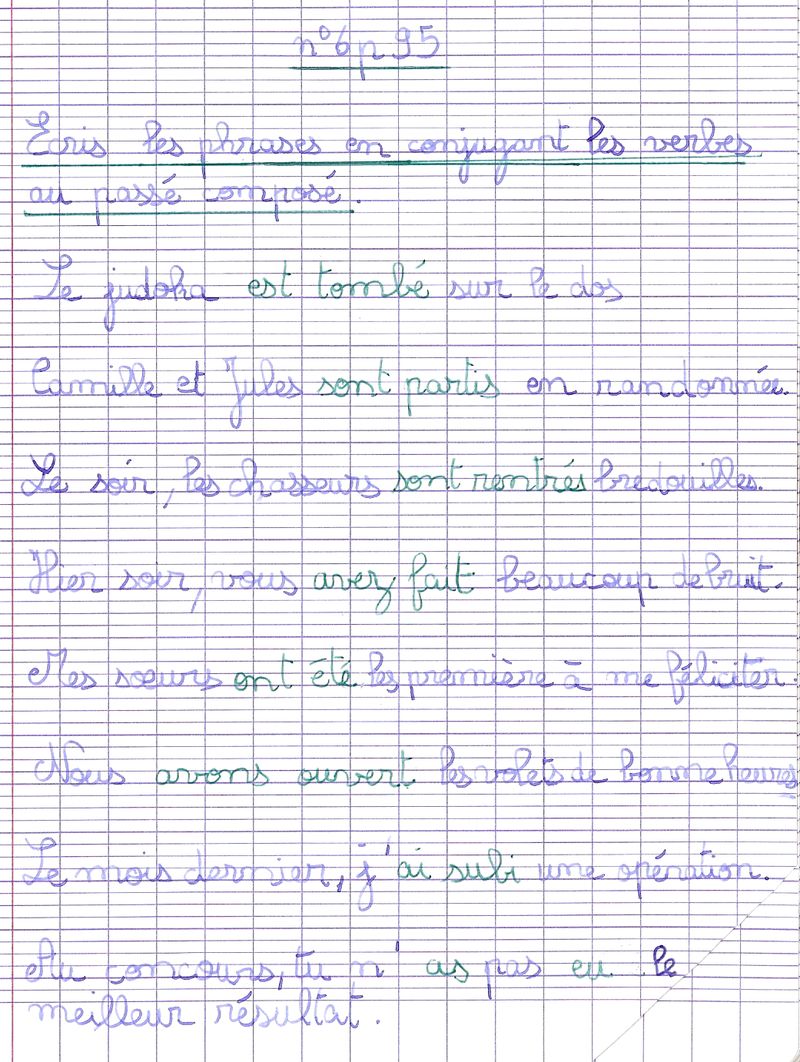 n°6 p 95
Ecris les phrases en conjugant les verbes
au passé composé.
Le judoka est tombé sur le dos
Camille et Jules sont partis en randonnée.
Le soir, les chasseurs sont rentrés bredouilles.
Hier soir, vous avez fait beaucoup de bruit.
Mes sœurs ont été les première à me féliciter.
Nous avons ouvert les volets de bonne heures
Le mois dernier, j'ai subi une opération.
Au concours, tu n'as pas eu le
meilleur résultat.